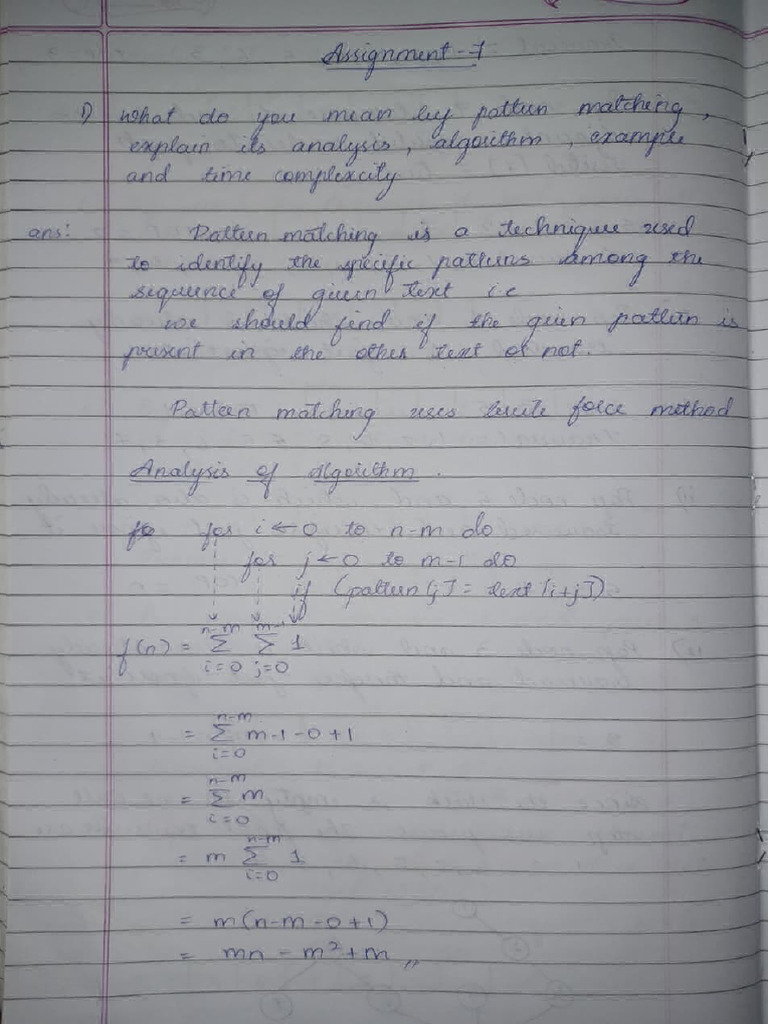 Assignment-1
1) what do you mean by pattern matching,
explain its analysis, algorithm, example
and time complexcity
ans: Pattern matching is a technique used
to identify the specific patterns among the
sequence of given text i.e
we should find if the given pattern is
present in the other text or not.
Pattern matching uses brute force method
Analysis of algorithm.
for i ← 0 to n-m do
for j ← 0 to m-1 do
if (pattern[j] = text[i+j])
f(n) = n-m Σ i=0 m-1 Σ j=0 1
= n-m Σ i=0 m-1-0+1
= n-m Σ i=0 m
= m n-m Σ i=0 1
= m(n-m-0+1)
= mn - m² + m,,